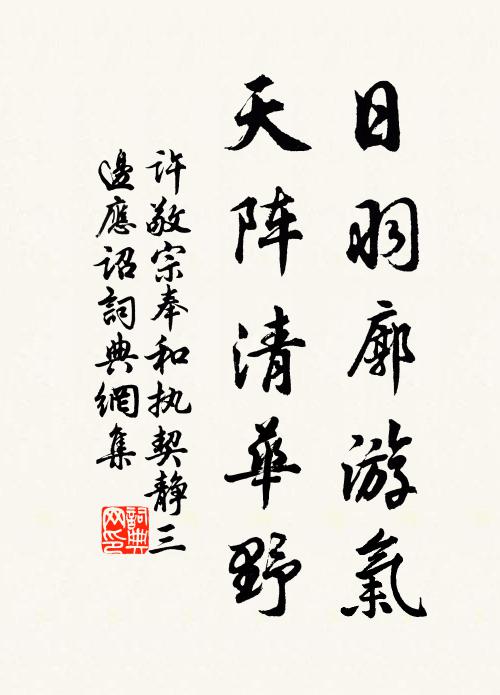 日羽廓游氣
天阵清華野
许敬宗奉和执契静三
邊應詔詞典網集
詞典网印